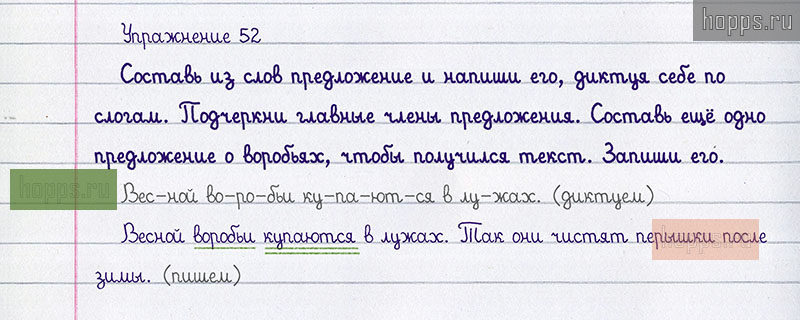 hopps.ru
Упражнение 52
Составь из слов предложение и напиши его, диктуя себе по
слогам. Подчеркни главные члены предложения. Составь ещё одно
предложение о воробьях, чтобы получился текст. Запиши его.
hopps.ru
Вес-ной во-ро-бьи ку-па-ют-ся в лу-жах. (диктуем)
Весной воробьи купаются в лужах. Так они чистят перышки после
hopps.ru
зимы. (пишем)